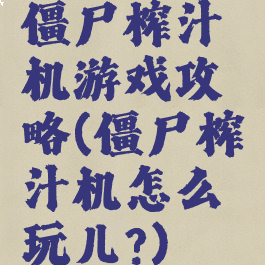 僵尸榨汁
机游戏攻
略(僵尸榨
汁机怎么
玩儿?)